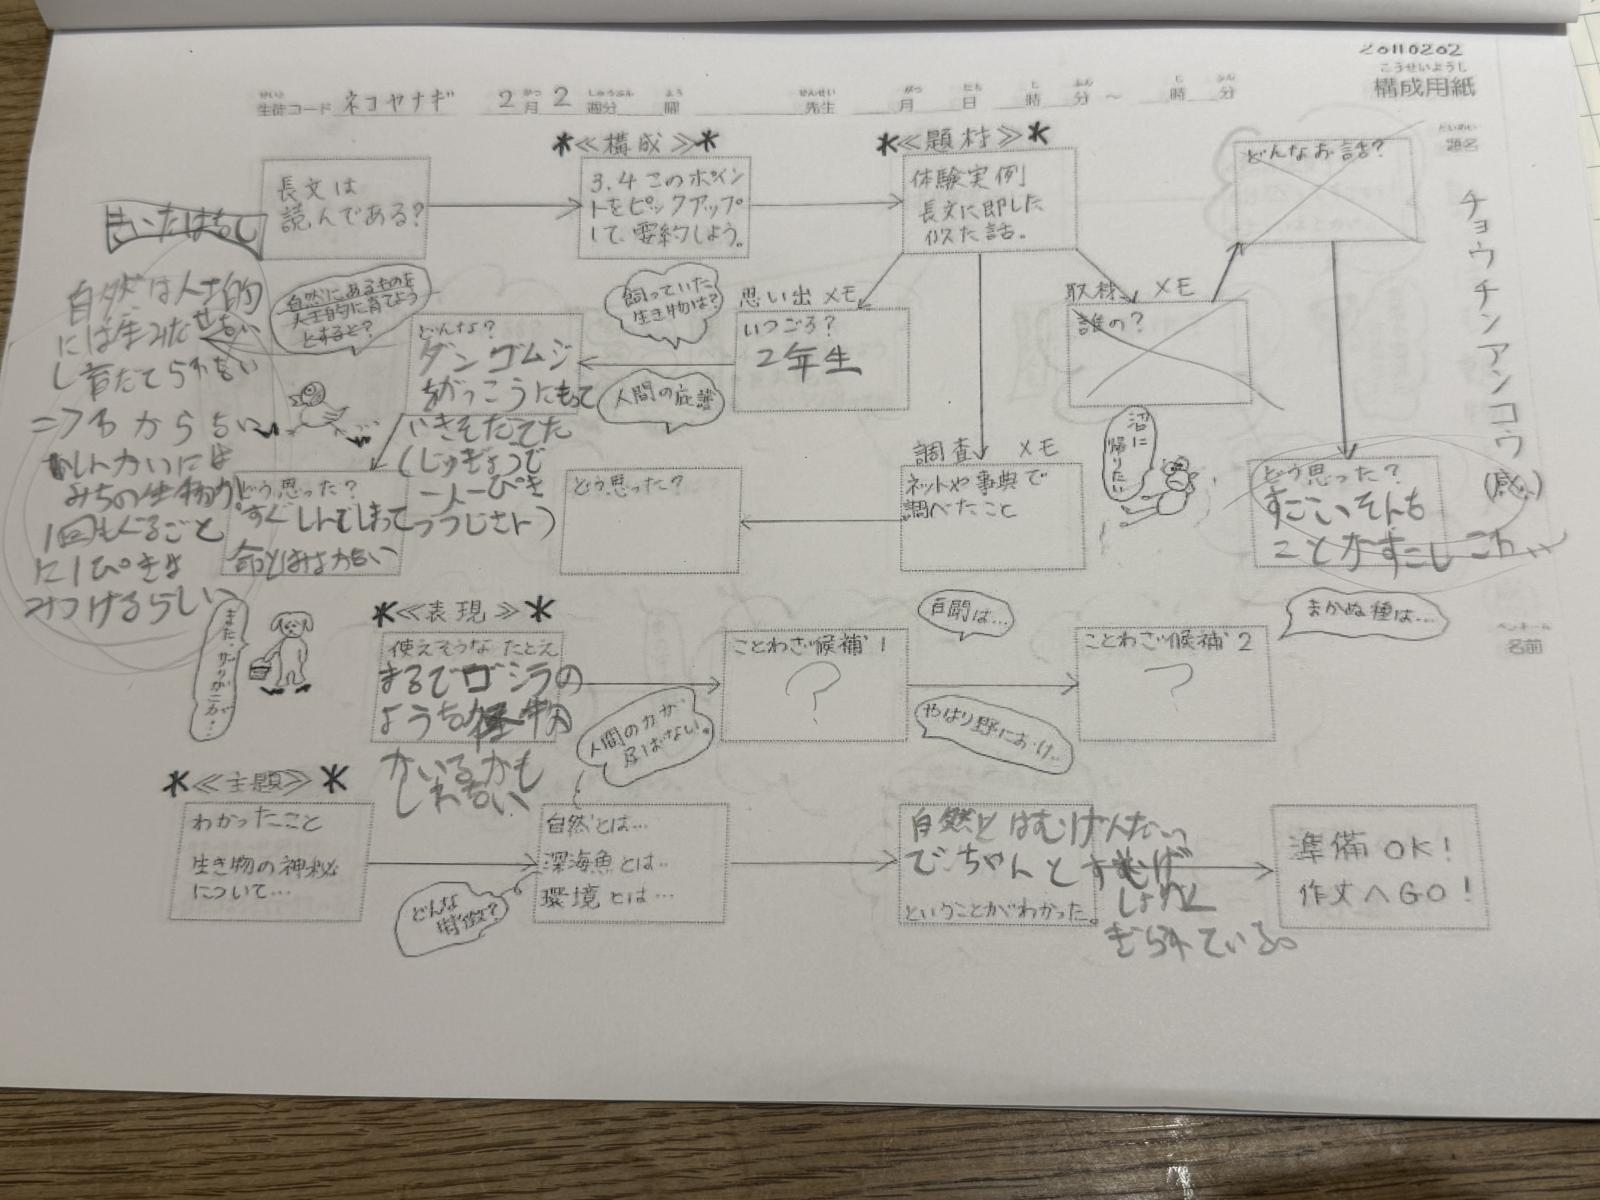 20110202
こうせいようし
構成用紙
せいと
生徒コード ネコヤナギ 2月2週分 曜 先生 月 日 時 分 ～ 時 分
だいめい
題名
チョウチンアンコウ(感)
ペンネーム
名前
*≪構成≫*
*≪題材≫*
長文は
読んである?
3.4このポイン
トをピックアップ
して、要約しよう。
体験実例
長文に即した
似た話。
どんなお話?
きいたはなし
自然は人工的
には生みだせない
し育だてられない
自然にあるものを
人工的に育てよう
とすると?
どんな?
ダンゴムシ
をがっこうにもって
いきそだてた
(じゅぎょうで
一人一ぴき
飼っていた
生き物は?
人間の庇護
思い出メモ
いつごろ?
2年生
取材メモ
誰の?
沼に
帰りたい
調査メモ
ネットや事典で
調べたこと
どう思った?
どう思った?
すぐしんでしまって
命とははかない
どう思った?
すごいそんな
ことがすこしこわい
しんかいには
みちの生物が
1回もぐるごと
に1ぴきは
みつけるらしい
また、ザリガニが…
*≪表現≫*
使えそうなたとえ
まるでゴジラの
ような怪物
がいるかも
しれない
ことわざ候補1
?
百聞は…
ことわざ候補2
?
まかぬ種は…
人間の力が
及ばない。
やはり野におけ…
*≪主題≫*
わかったこと
生き物の神秘
について…
どんな
特徴?
自然とは…
深海魚とは…
環境とは…
自然とはむげんだい
でちゃんと
ということがわかった。
ぎられている。
準備OK!
作文へGO!